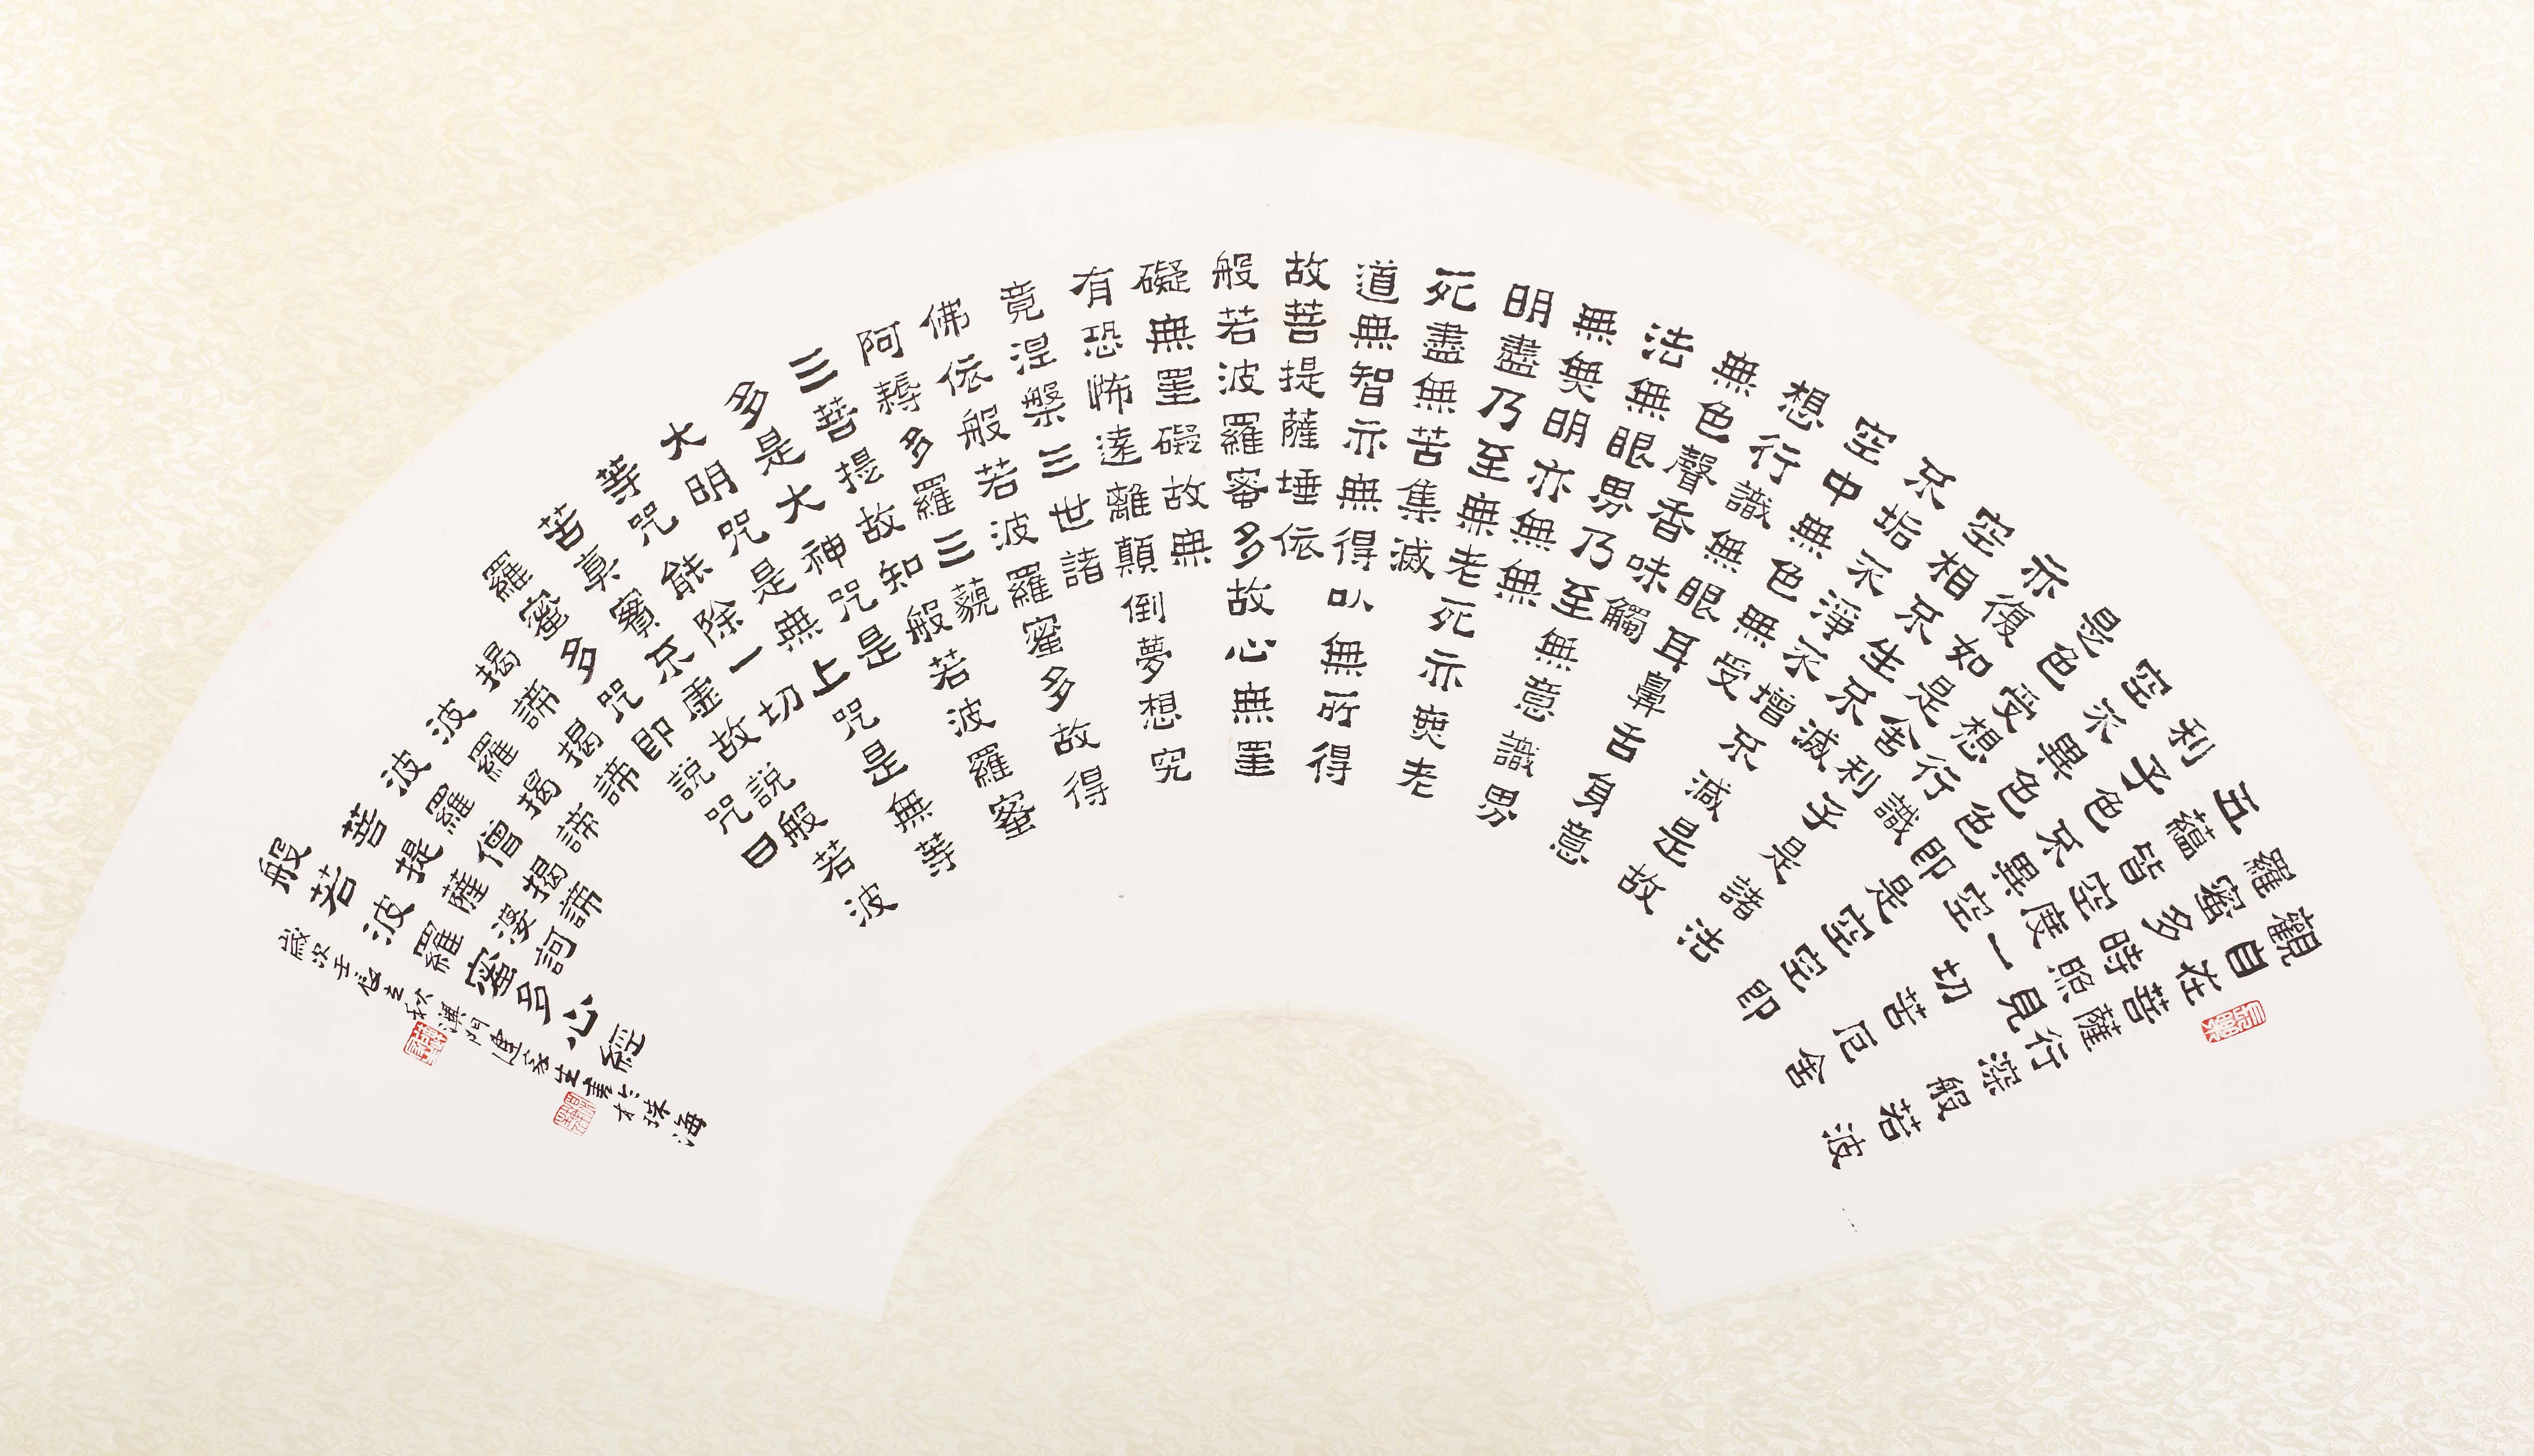 觀自在菩薩行深般若波
羅蜜多時照見
五蘊皆空度一切苦厄舍
利子色不異空
空不異色色即是空空即
是色受想行識
亦復如是舍利子是諸法
空相不生不滅
不垢不淨不增不減是故
空中無色無受
想行識無眼耳鼻舌身意
無色聲香味觸
法無眼界乃至無意識界
無無明亦無無
明盡乃至無老死亦無老
死盡無苦集滅
道無智亦無得以無所得
故菩提薩埵依
般若波羅蜜多故心無罣
礙無罣礙故無
有恐怖遠離顛倒夢想究
竟涅槃三世諸
佛依般若波羅蜜多故得
阿耨多羅三藐
三菩提故知般若波羅蜜
多是大神咒是
大明咒是無上咒是無等
等咒能除一切
苦真實不虛故說般若波
羅蜜多咒即說咒曰
揭諦揭諦
波羅揭諦
波羅僧揭諦
菩提薩婆訶
般若波羅蜜多心經
歲次壬辰立秋澳門連家生書於珠海